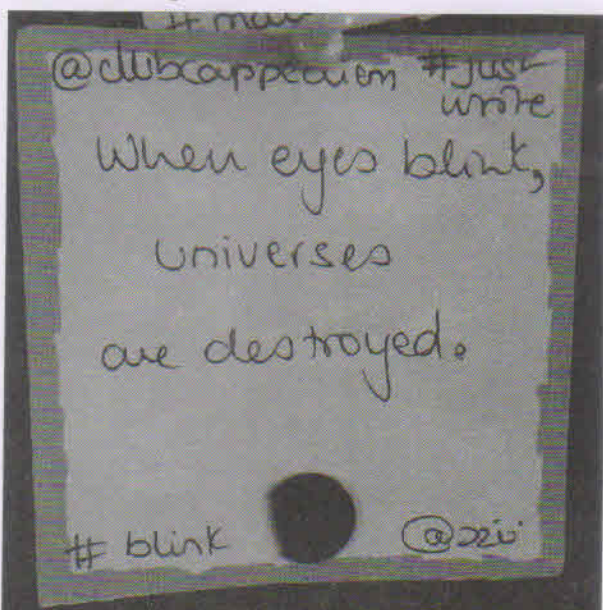 @clubcappeduem #Just
write
When eyes blink,
universes
are destroyed.
# blink